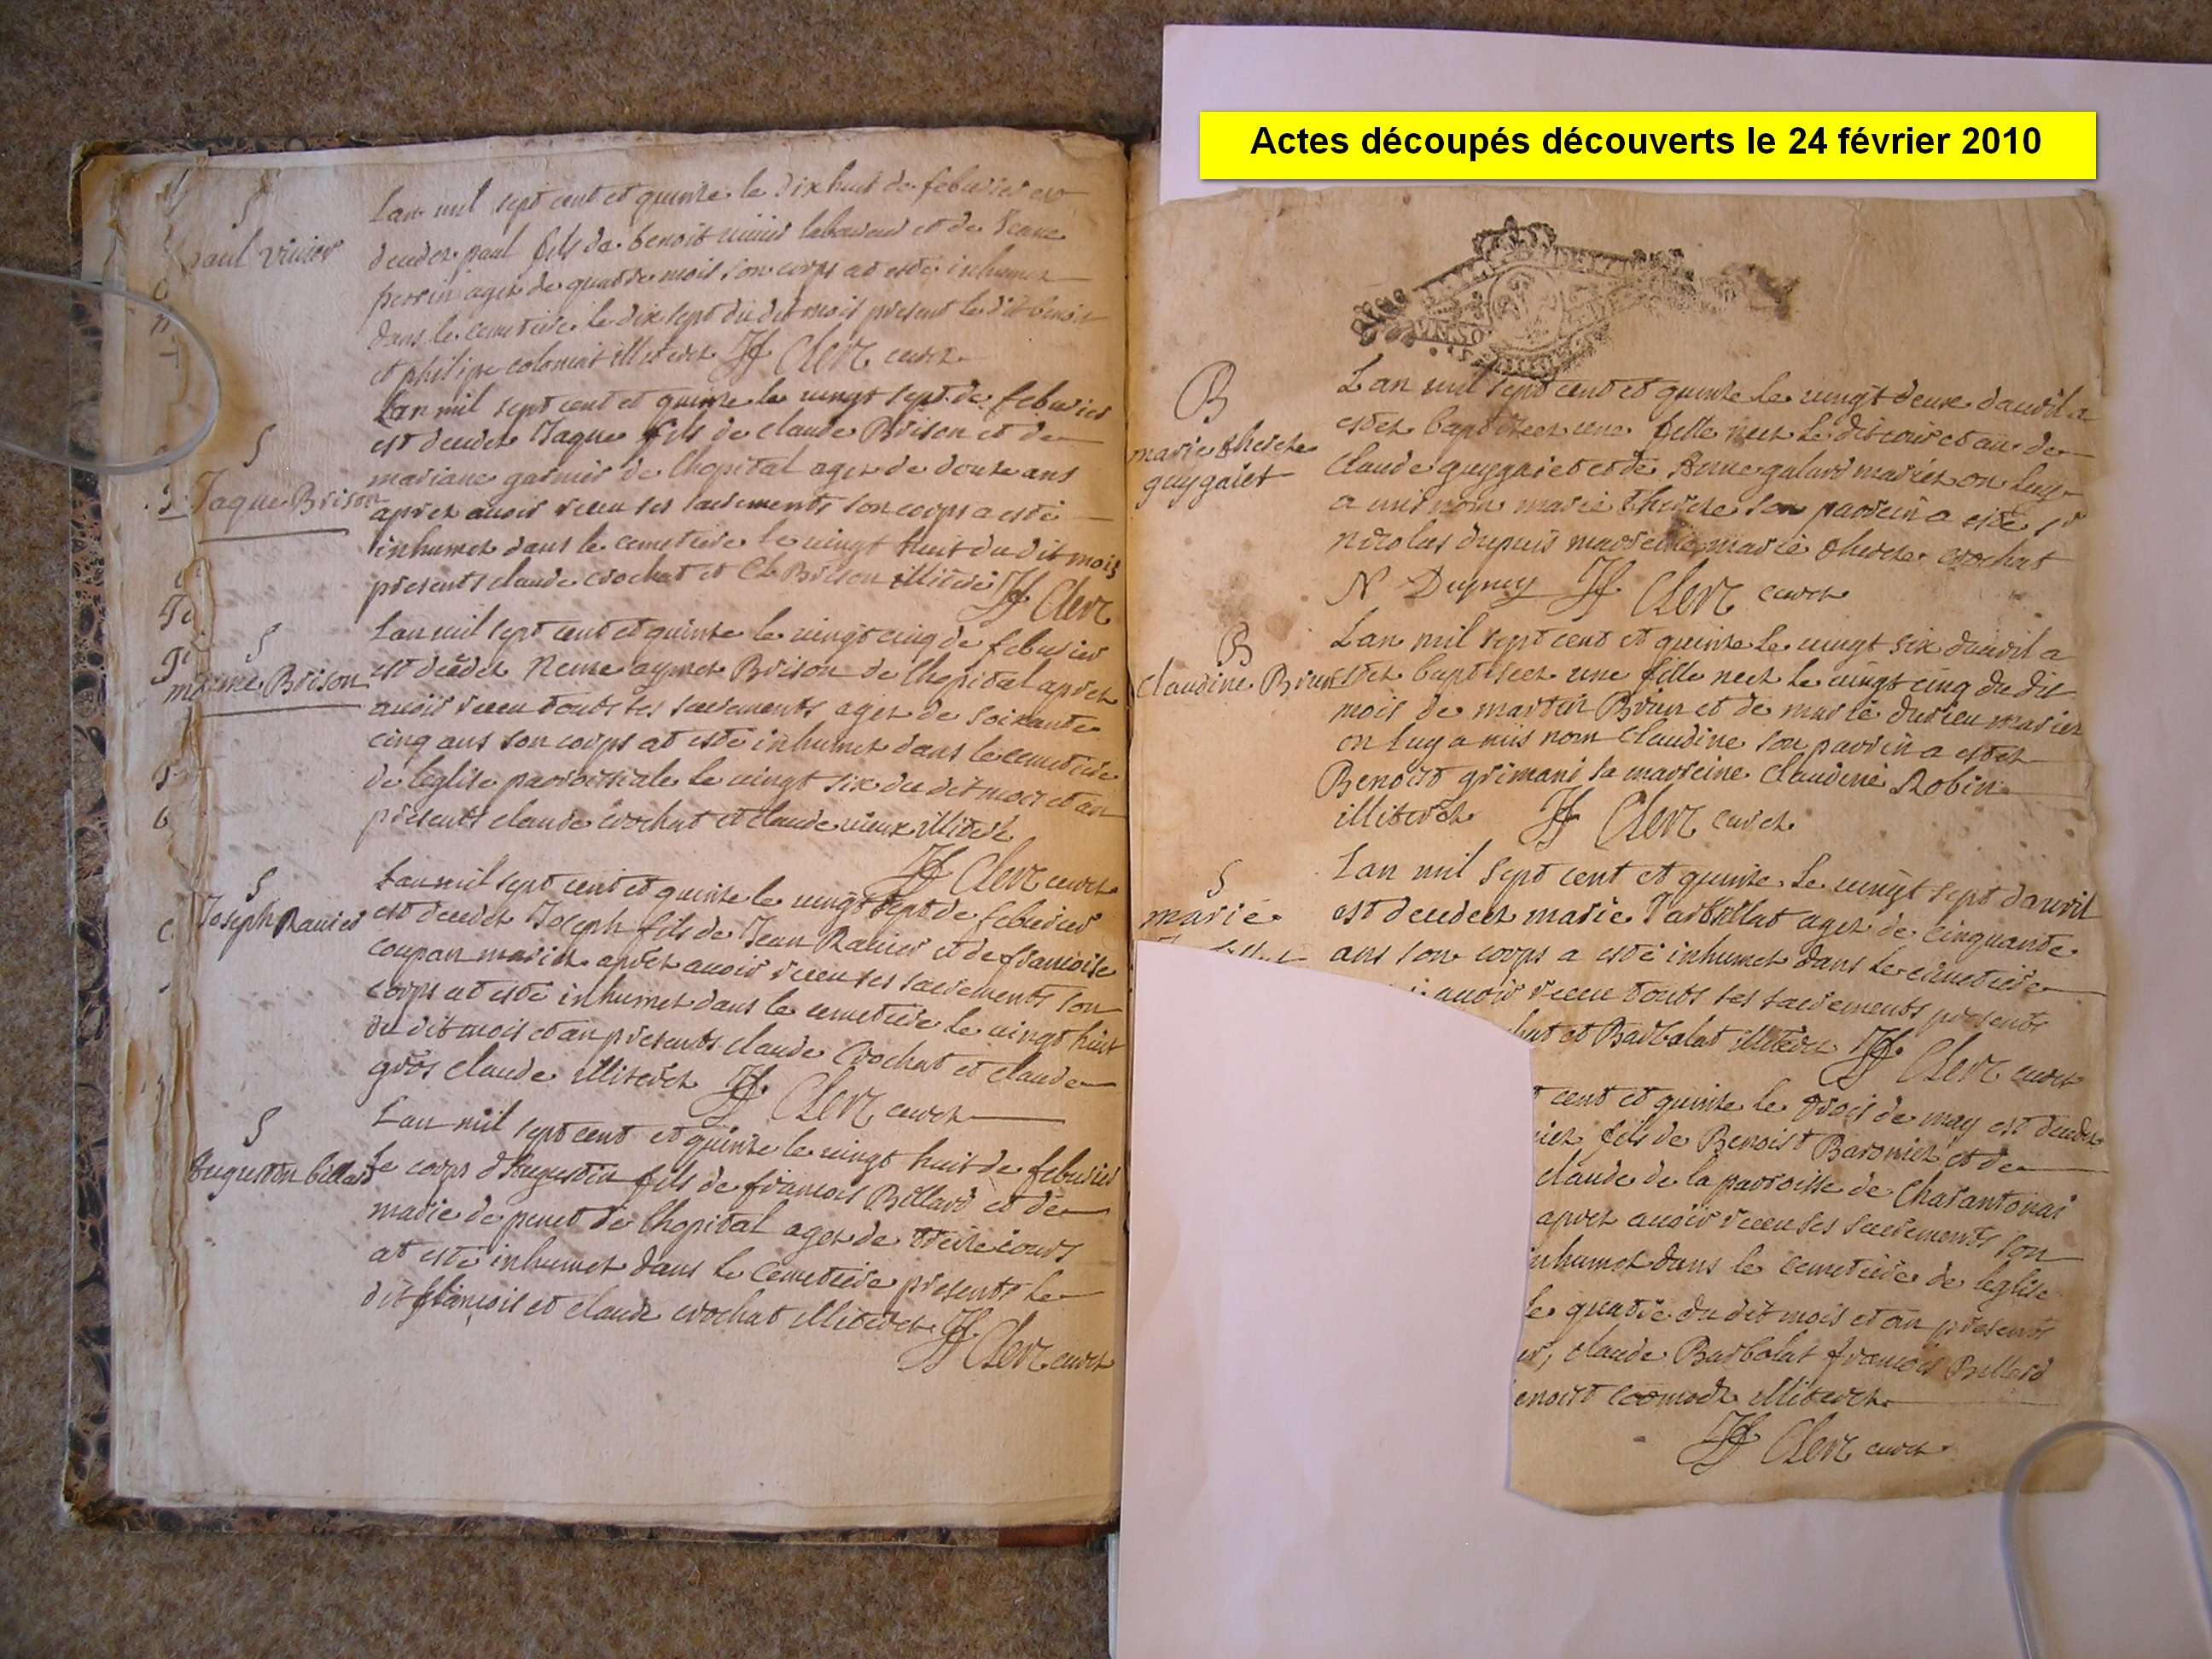 Actes découpés découverts le 24 février 2010
S
paul vivier
Lan mil sept cent et quinze le dixhuit de febvrier est
decedez paul fils de benoit vivier laboureur et de Jeane
perrin agez de quatre mois son corps at esté inhumez
dans le cemetiere le dix sept du dit mois present le dit benoit
et philipe colomiat illiterez Clerc curez
S
Jaque Brison
Lan mil sept cent et quinze le vingt sept de febvrier
est decedez Jaque fils de claude Brison et de
mariane garnier de lhopital agez de douze ans
aprez avoir receu ses sacrements son corps a esté
inhumez dans le cemetiere le vingt huit du dit mois
presents claude crochat et Cl Brison illitere Clerc
S
Brison
Lan mil sept cent et quinze le vingt cinq de febvrier
est decedez aymez Brison de lhopital aprez
avoir receu touts ses sacrements agez de soixante
cinq ans son corps at esté inhumez dans le cemetiere
de leglise parroissiale le vingt six du dit mois et an
présents claude crochat et claude vieux illiterez
Clerc curez
S
Joseph Ravier
Lan mil sept cent et quinze le vingt sept de febvrier
est decedez Joseph fils de Jean Ravier et de francoise
coupan mariez aprez avoir receu ses sacrements son
corps at esté inhumez dans le cemetiere le vingt huit
du dit mois et an présents claude Crochat et claude
gros claude illiterez Clerc curez
S
Augustin billard
Lan mil sept cent et quinze le vingt huit de febvrier
le corps dAugustin fils de francois Billard et de
marie de penet de lhopital agez de treize jours
at esté inhumez dans le cemetiere presents le
dit francois et claude crochat illiterez
Clerc curez
B
marie therese
guygaiet
Lan mil sept cent et quinze le vingt deux davril a
estez baptizeez une fille neez le dit jour et an de
claude guygaiet et de Anne galard mariez on luy
a mis nom marie therese son parrein a esté sr
nicolas dupuis marreine marie therese crochat
N Dupuy Clerc curez
B
Claudine Brun
Lan mil sept cent et quinze le vingt six davril a
estez baptiseez une fille neez le vingt cinq du dit
mois de martin Brun et de marie durieu mariez
on luy a mis nom Claudine son parrin a estez
Benoist grimani sa marreine Claudine Robin
illiterez Clerc curez
S
marie
Lan mil sept cent et quinze le vingt sept davril
est decedeez marie agez de cinquante
ans son corps a esté inhumez dans le cemetiere
avoir receu touts ses sacrements presents
et Barbolat illiterez Clerc curez
cent et quinze le trois de may est decedez
fils de Benoist Baronier et de
claude de la parroisse de Charantonai
aprez avoir receu ses sacrements son
inhumez dans le cemetiere de leglise
le quatre du dit mois et an presents
claude Barbolat francois Billard
illiterez
Clerc curez